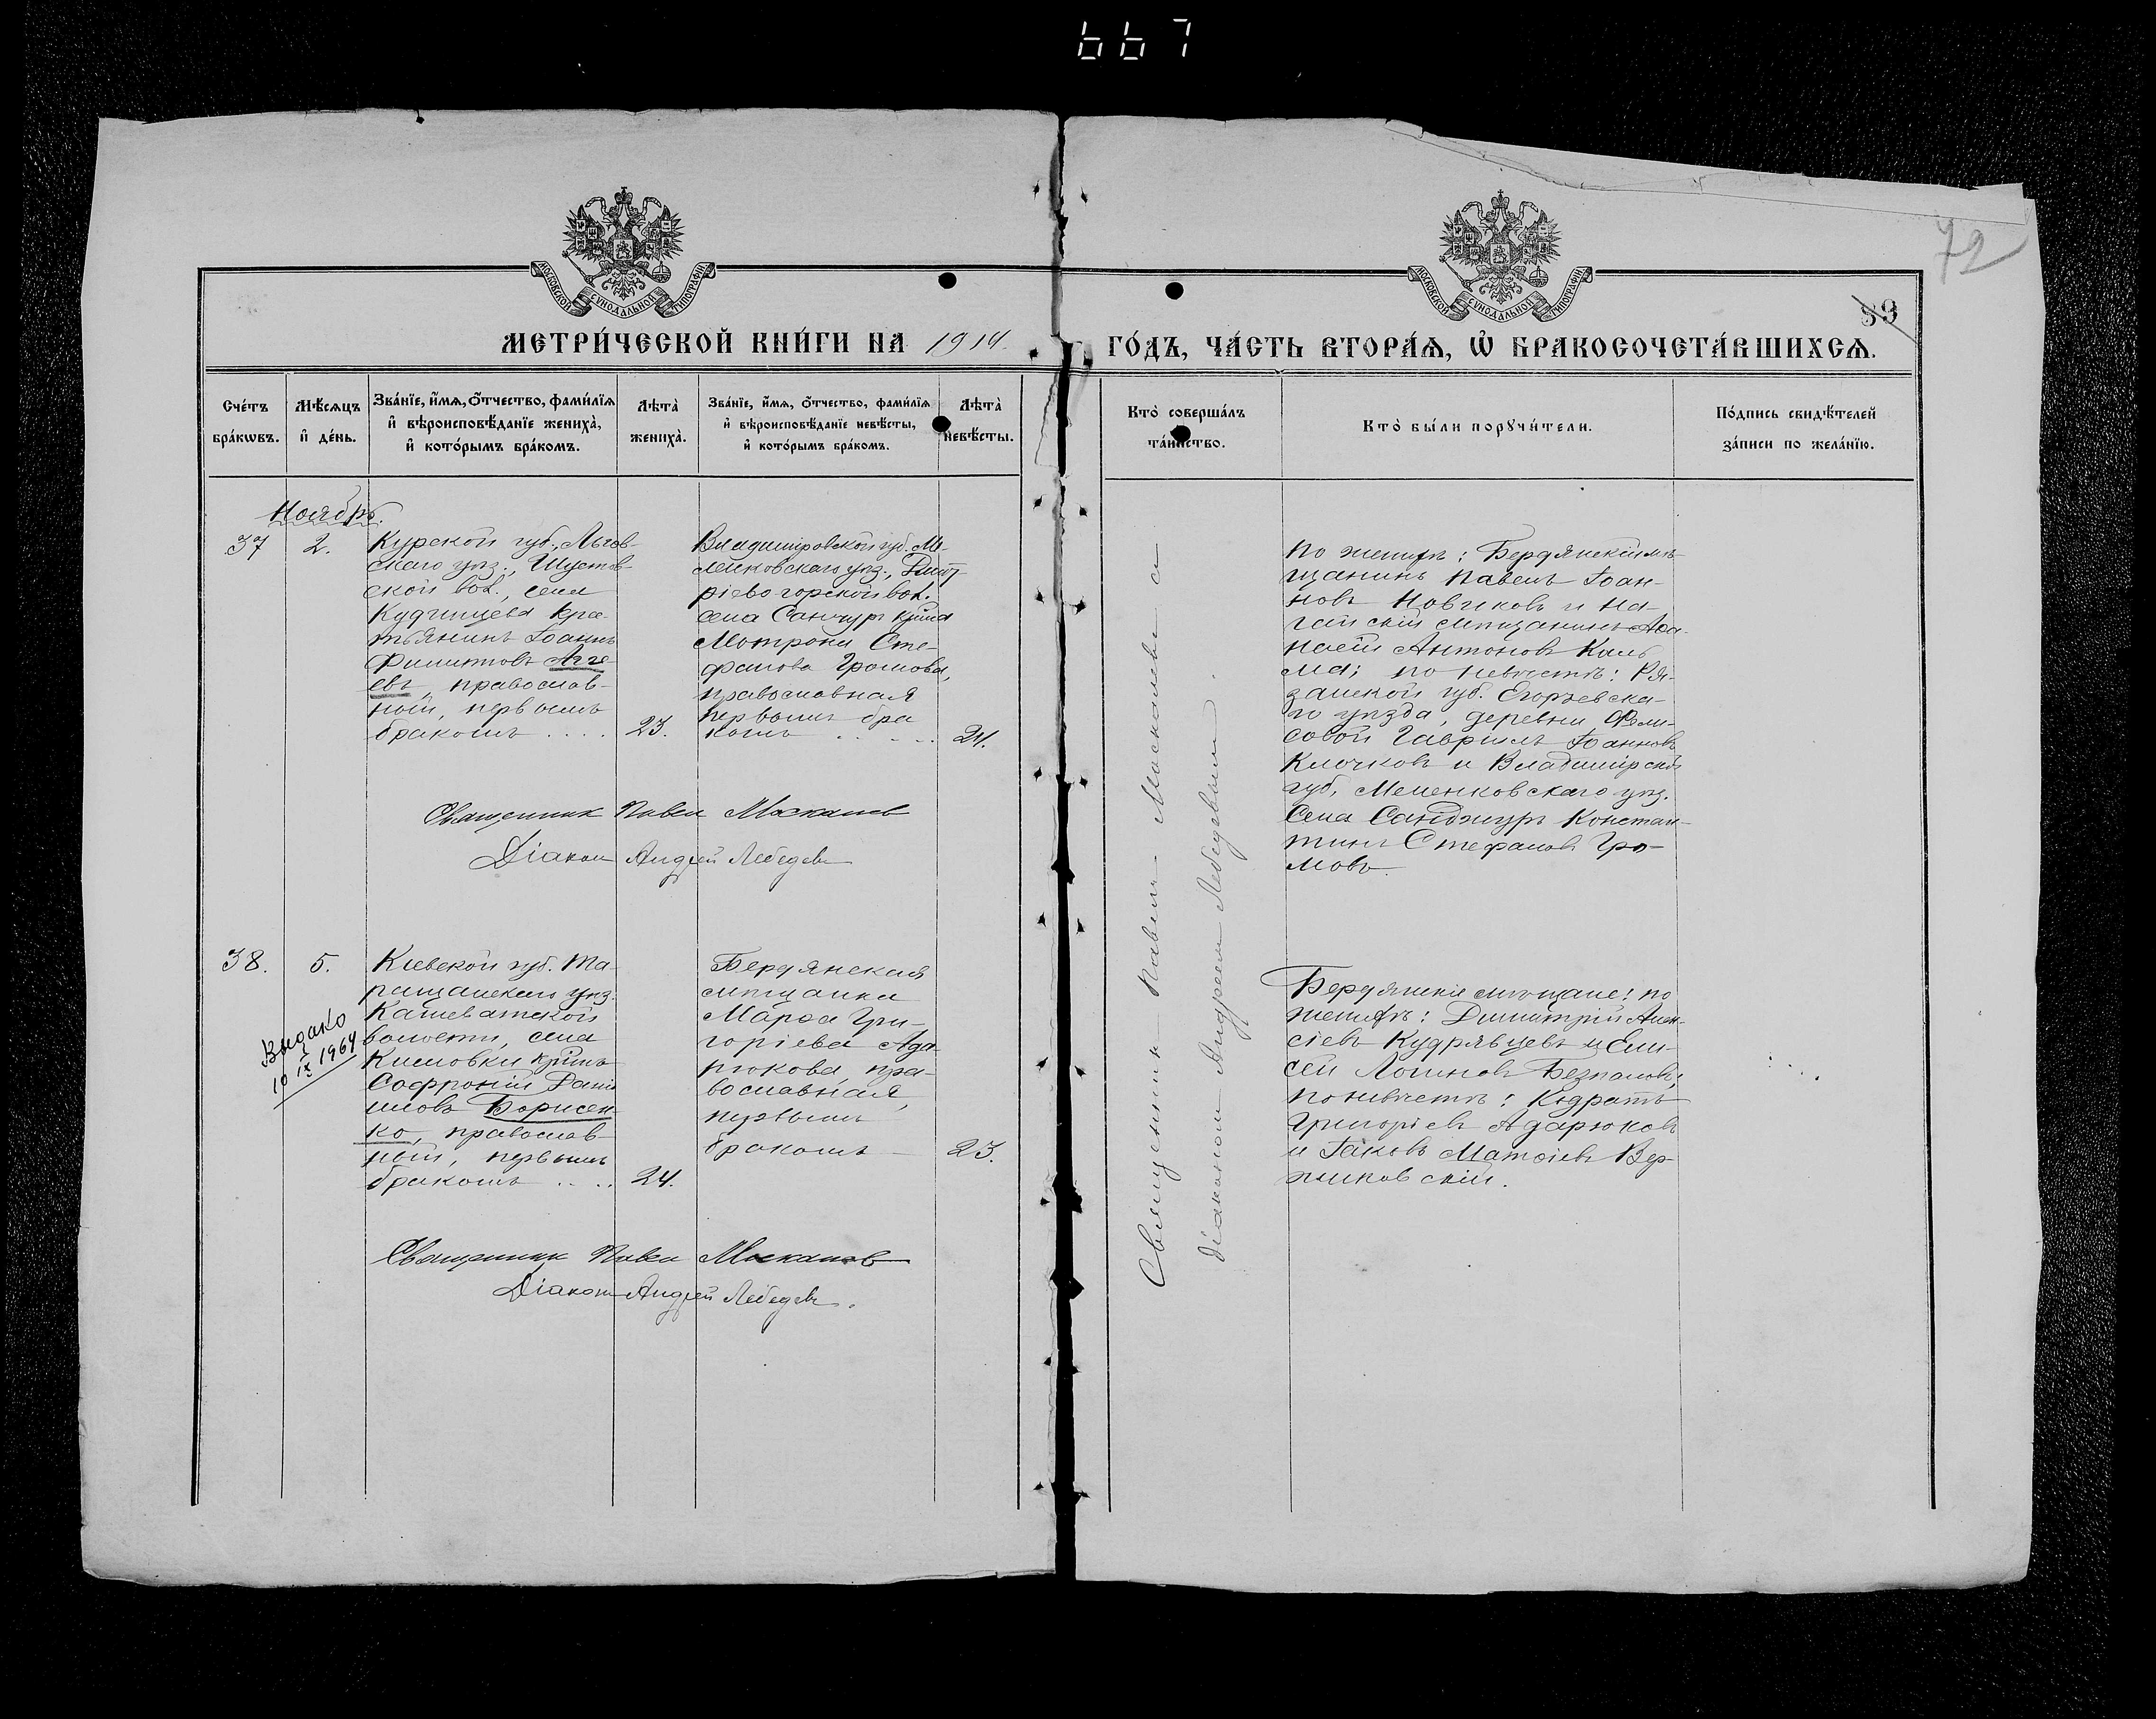 667
72
89
МОСКОВСКОЙ СѴНОДАЛЬНОЙ ТИПОГРАФІИ
МОСКОВСКОЙ СѴНОДАЛЬНОЙ ТИПОГРАФІИ
МЕТРИ́ЧЕСКОЙ КНИ́ГИ НА 1914
ГО́ДЪ, ЧА́СТЬ ВТОРА́Ѧ, Ѡ҆ БРАКОСОЧЕТА́ВШИХСѦ.
Сче́тъ
бра́кѡвъ.
Мѣ́сѧцъ
и҆ де́нь.
Зва́нїе, и҆́мѧ, ѻ҆́тчество, фами́лїѧ
и҆ вѣроисповѣ́данїе жениха̀,
и҆ кото́рымъ бра́комъ.
Лѣта̀
жениха̀.
Зва́нїе, и҆́мѧ, ѻ҆́тчество, фами́лїѧ
и҆ вѣроисповѣ́данїе невѣ́сты,
и҆ кото́рымъ бра́комъ.
Лѣта̀
невѣ́сты.
Кто̀ соверша́лъ
та́инство.
Кто̀ бы́ли порꙋчи́тели.
По́дпись свидѣ́телей
за́писи по жела́нїю.
Ноябрь.
37
2.
Курской губ., Льгов-
скаго уѣз., Шустов-
ской вол., села
Кудинцева кре-
стьянинъ Іоаннъ
Филиповъ Агге-
евъ, православ-
ной, первымъ
бракомъ . . . .
23.
Владимировской губ. Ме-
ленковскаго уѣз., Дмит-
ріево горской вол.
села Санчуръ кр-ина
Мотрона Сте-
фанова Громова,
православная
первымъ бра
комъ . . . . .
24.
Священник Павел Москалев
Діакон Андрей Лебедевъ
Священникъ Павелъ Москалевъ и
діаконом Андреем Лебедевым.
По женихѣ: Бердянскій мѣ-
щанинъ Павелъ Іоан-
новъ Новиковъ и На-
гайскій мѣщанинъ Аѳа-
насій Антоновъ Каль
ма; по невѣстѣ: Ря-
занской губ. Егорьевска-
го уѣзда, деревни Фели-
совой Гавриилъ Іоанновъ
Клочковъ и Владимірской
губ. Меленковскаго уѣз.
Села Санджуръ Констан-
тинъ Стефановъ Гро-
мовъ.
38.
5.
Выдано
10 IX 1964
Кіевской губ. Та-
ращанскаго уѣз.
Кашеватской
волости, села
Кисловки кр-инъ
Софроній Дані
иловъ Борисен-
ко, православ-
ной, первымъ
бракомъ . . . .
24.
Бердянская
мѣщанка
Марѳа Гри-
горіева Ада-
рюкова, пра-
вославная,
первымъ
бракомъ —
23.
Бердянскіе мѣщане: по
женихѣ: Димитрій Алек-
сіевъ Кудрявцевъ и Ели-
сей Логиновъ Безпаловъ;
по невѣстѣ: Кодратъ
Григоріевъ Адарюковъ
и Іаковъ Матѳіевъ Вер-
жиковскій.
Священник Павел Москалев
Діакон Андрей Лебедевъ.